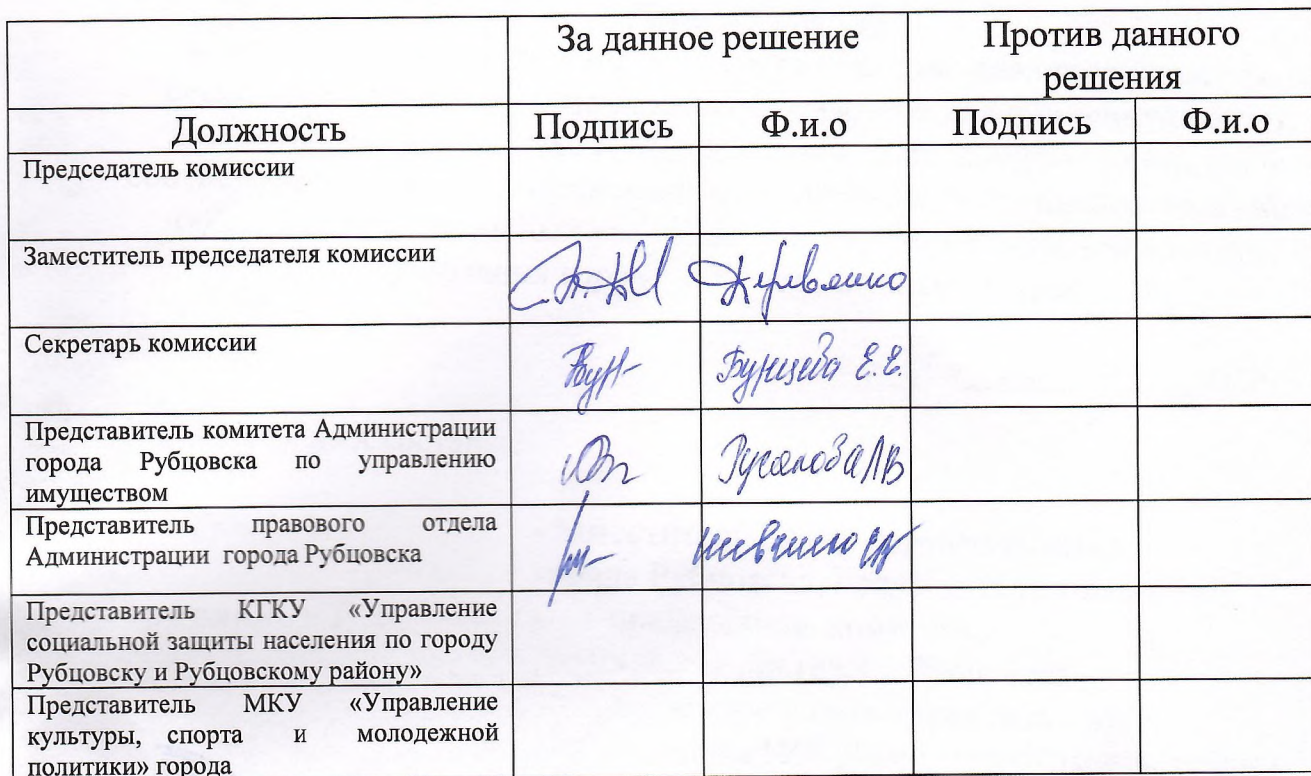 За данное решение Против данного
решения
Должность Подпись Ф.и.о Подпись Ф.и.о
Председатель комиссии
Заместитель председателя комиссии Деревянко
Секретарь комиссии Бурцева Е.Е.
Представитель комитета Администрации
города Рубцовска по управлению
имуществом
Русанова ЛВ
Представитель правового отдела
Администрации города Рубцовска
Представитель КГКУ «Управление
социальной защиты населения по городу
Рубцовску и Рубцовскому району»
Представитель МКУ «Управление
культуры, спорта и молодежной
политики» города